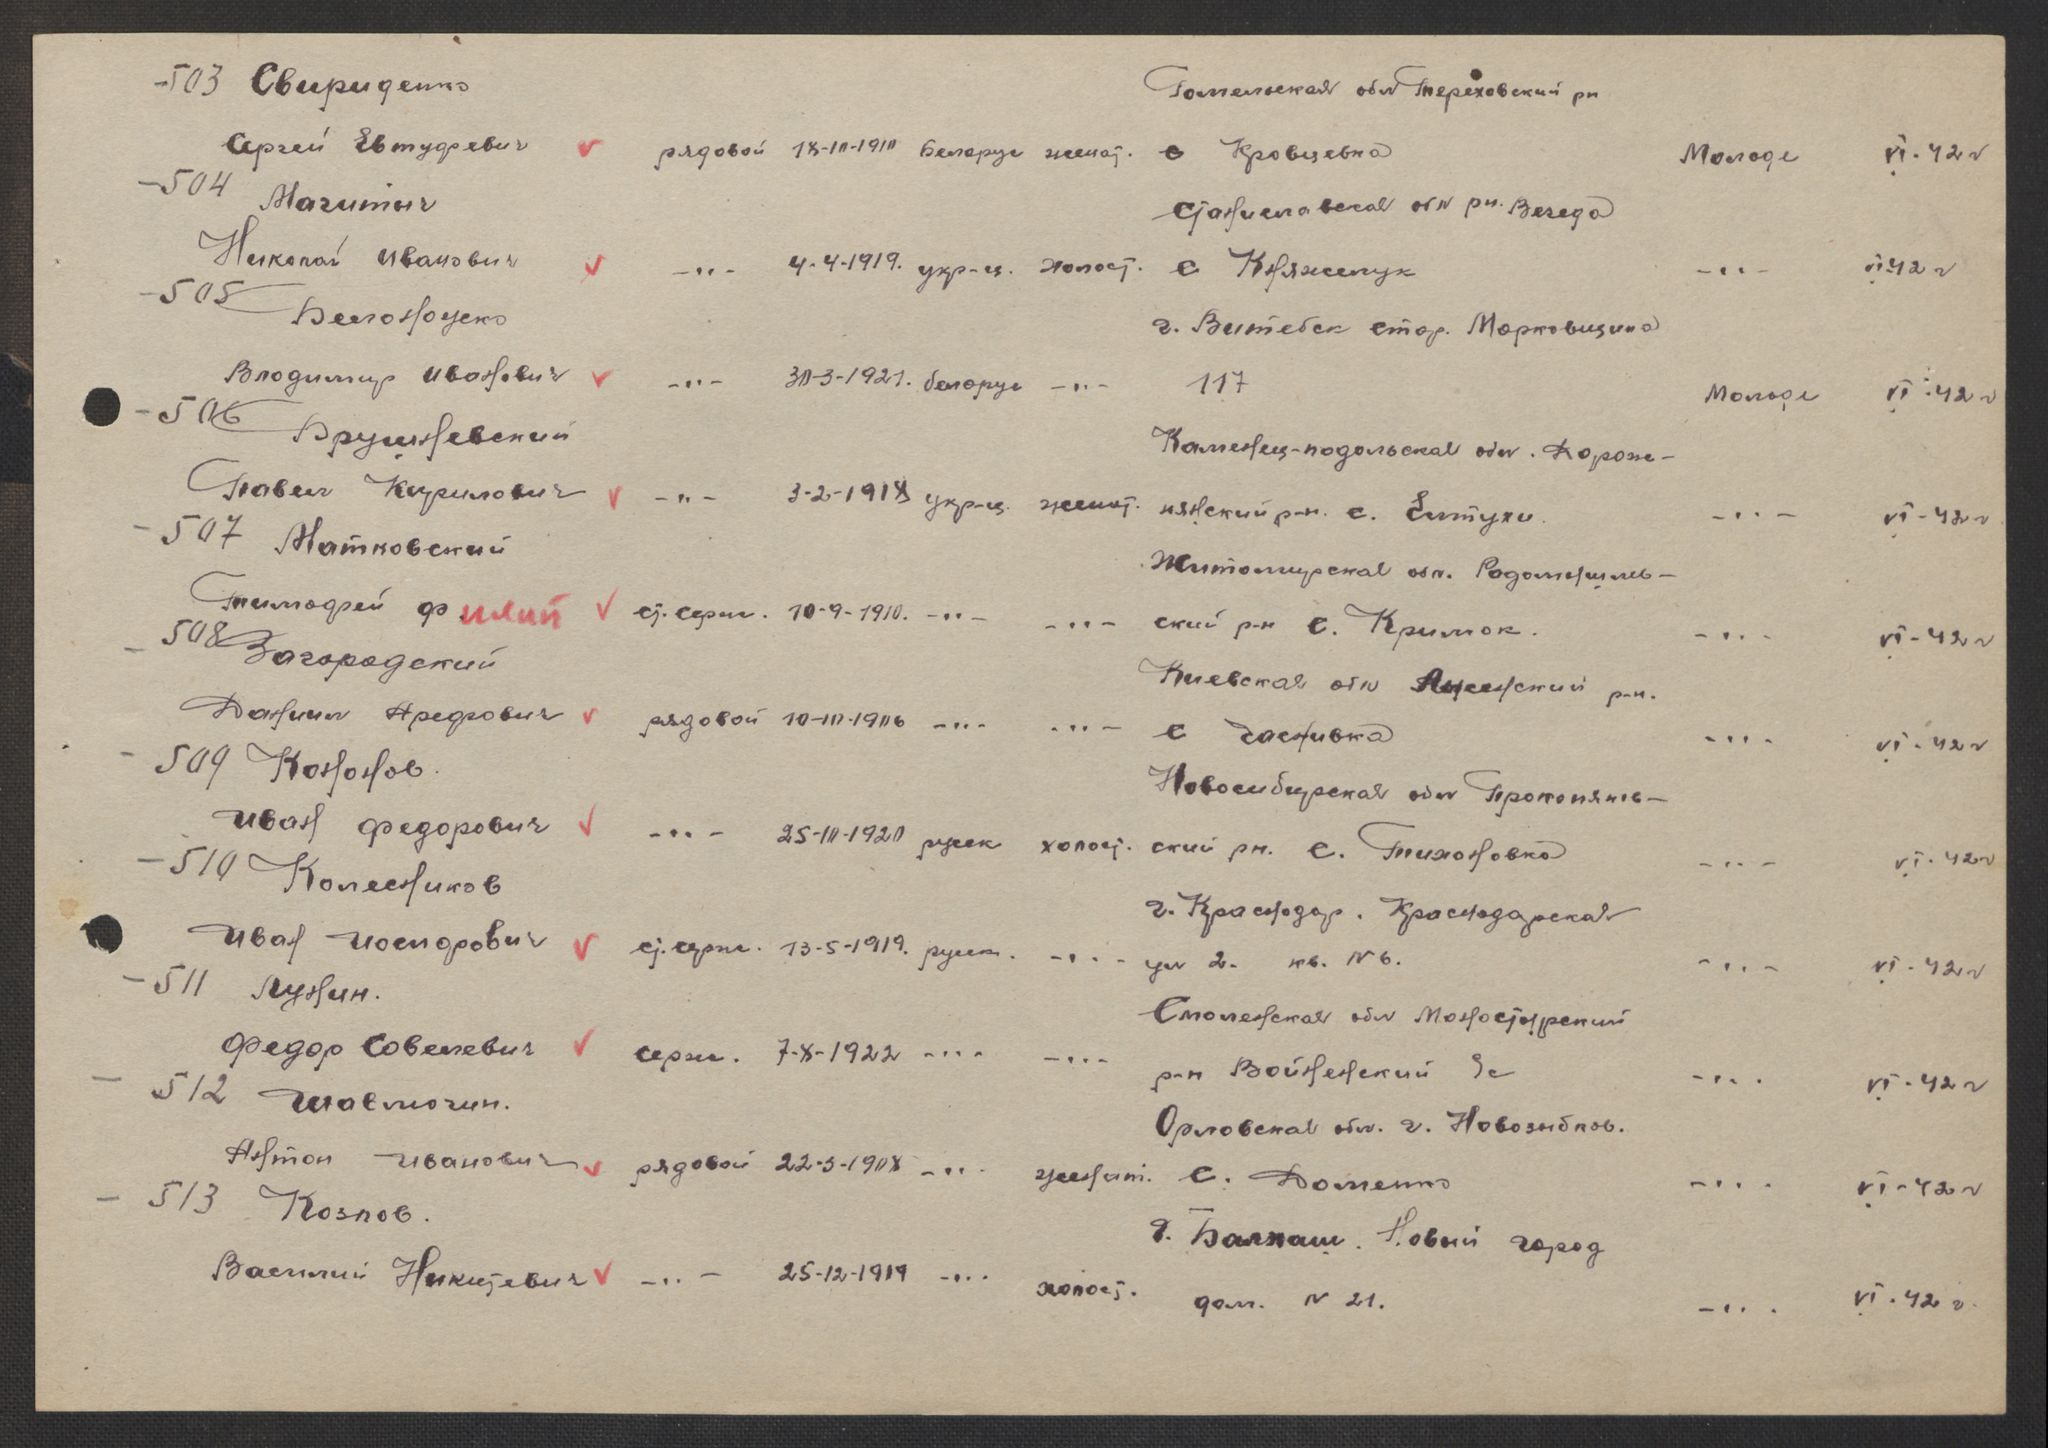 -503 Свириденко
Гомельская обл Тереховский рн
Сергей Евтуфевич ✓ рядовой 18-10-1910 Беларус женат. с Кровцевка Молоде VI-42 г
-504 Магитыч
Станиславская обл рн.
Николай Иванович ✓ -"- 4-4-1919. укр-ц. холост. с Княжелук -"- VI 42 г
-505 Белоноцеко
г. Витебск стор. Марковщина
Владимир Иванович ✓ -"- 30-3-1921. беларус -"- 117 Молоде VI-42 г
-506 Брушневский
Каменец-подольская обл.
Павел Кирилович ✓ -"- 3-2-1918 укр-ц. женат. р-н. с. -"- VI-42 г
-507 Матковский
Житомирская обл. Радомышлев-
Тимофей Ф ✓ ст. серж. 10-9-1910. -"- -"- ский р-н с. Кримок. -"- VI-42 г
- 508 Загородский
Киевская обл р-н.
Данил Арефович ✓ рядовой 10-10-1906 -"- -"- с Часнивка -"- VI-42 г
- 509 Кононов.
Новосибирская обл Прокопянь-
Иван Федорович ✓ -"- 25-10-1920 русск холост. ский рн. с. Тихоновка -"- VI-42 г
-510 Колесников
г. Краснодар. Краснодарская
Иван Иосифрович ✓ ст. серж. 13-5-1919. русск. -"- ул 2. кв. N 6. -"- VI-42 г
- 511 Лунин.
Смоленская обл Монастырский
Федор Совелевич ✓ серж. 7-8-1922 -"- -"- р-н Войненский с/с -"- VI-42 г
- 512 Шавлюгин.
Орловская обл. г. Новозыбков.
Антон Иванович ✓ рядовой 22-3-1908 -"- женат. с. Доменко -"- VI-42 г
- 513 Козлов.
г. Балхаш. Новый город
Василий Никитевич ✓ -"- 25-12-1919 -"- холост. дом. N 21. -"- VI-42 г.